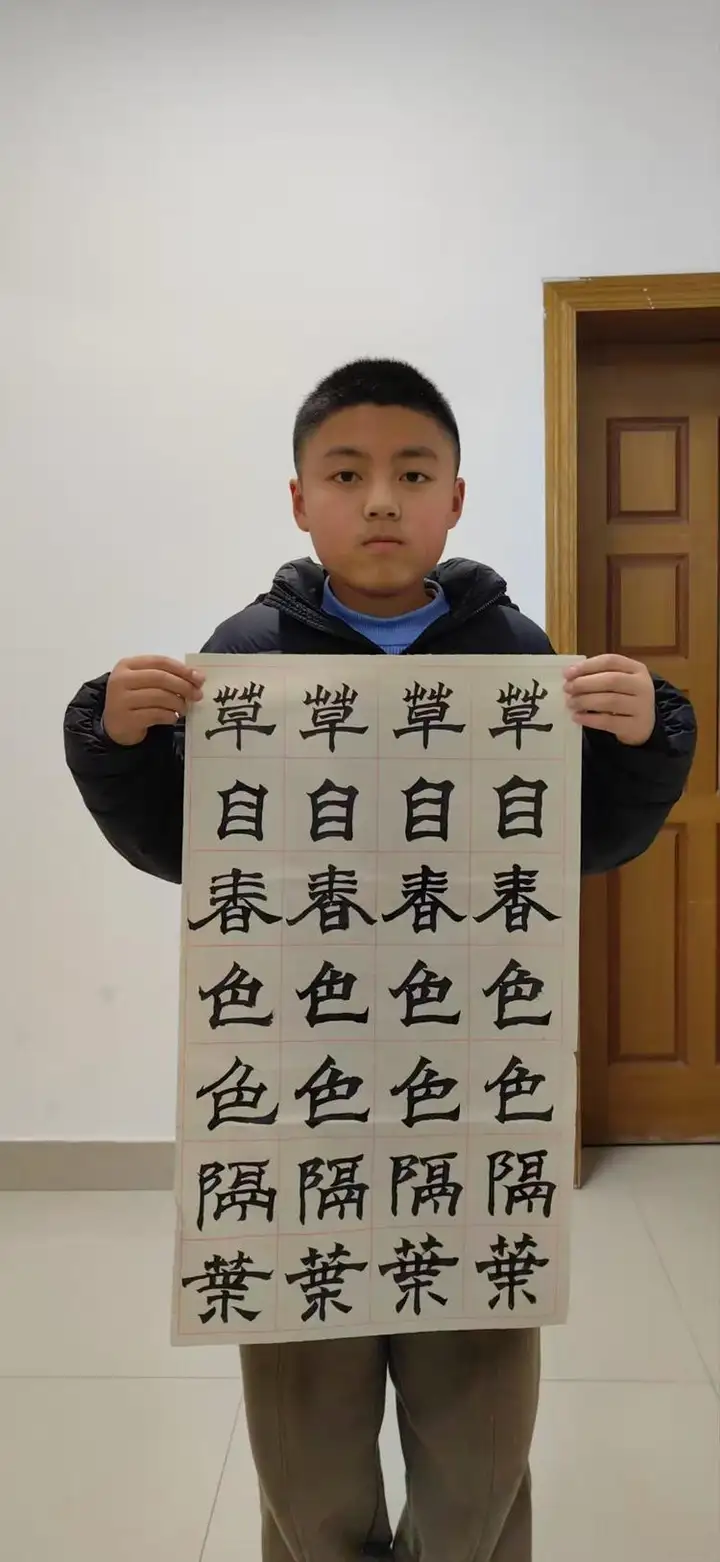 草自春色色隔葉
草自春色色隔葉
草自春色色隔葉
草自春色色隔葉